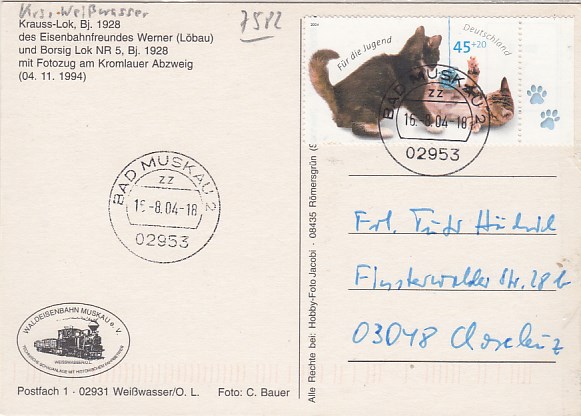 Krs. Weißwasser
7582
Krauss-Lok, Bj. 1928
des Eisenbahnfreundes Werner (Löbau)
und Borsig Lok NR 5, Bj. 1928
mit Fotozug am Kromlauer Abzweig
(04. 11. 1994)
Für die Jugend
45+20
Deutschland
BAD MUSKAU 2
zz
16.-8.04-18
02953
BAD MUSKAU 2
zz
-8.04-18
02953
Frl.
Finsterwalder Str. 28b
03048
WALDEISENBAHN MUSKAU e. V.
WEISSWASSER/O.L.
Postfach 1 · 02931 Weißwasser/O. L.
Foto: C. Bauer
Alle Rechte bei: Hobby-Foto Jacobi · 08435 Römersgrün (S